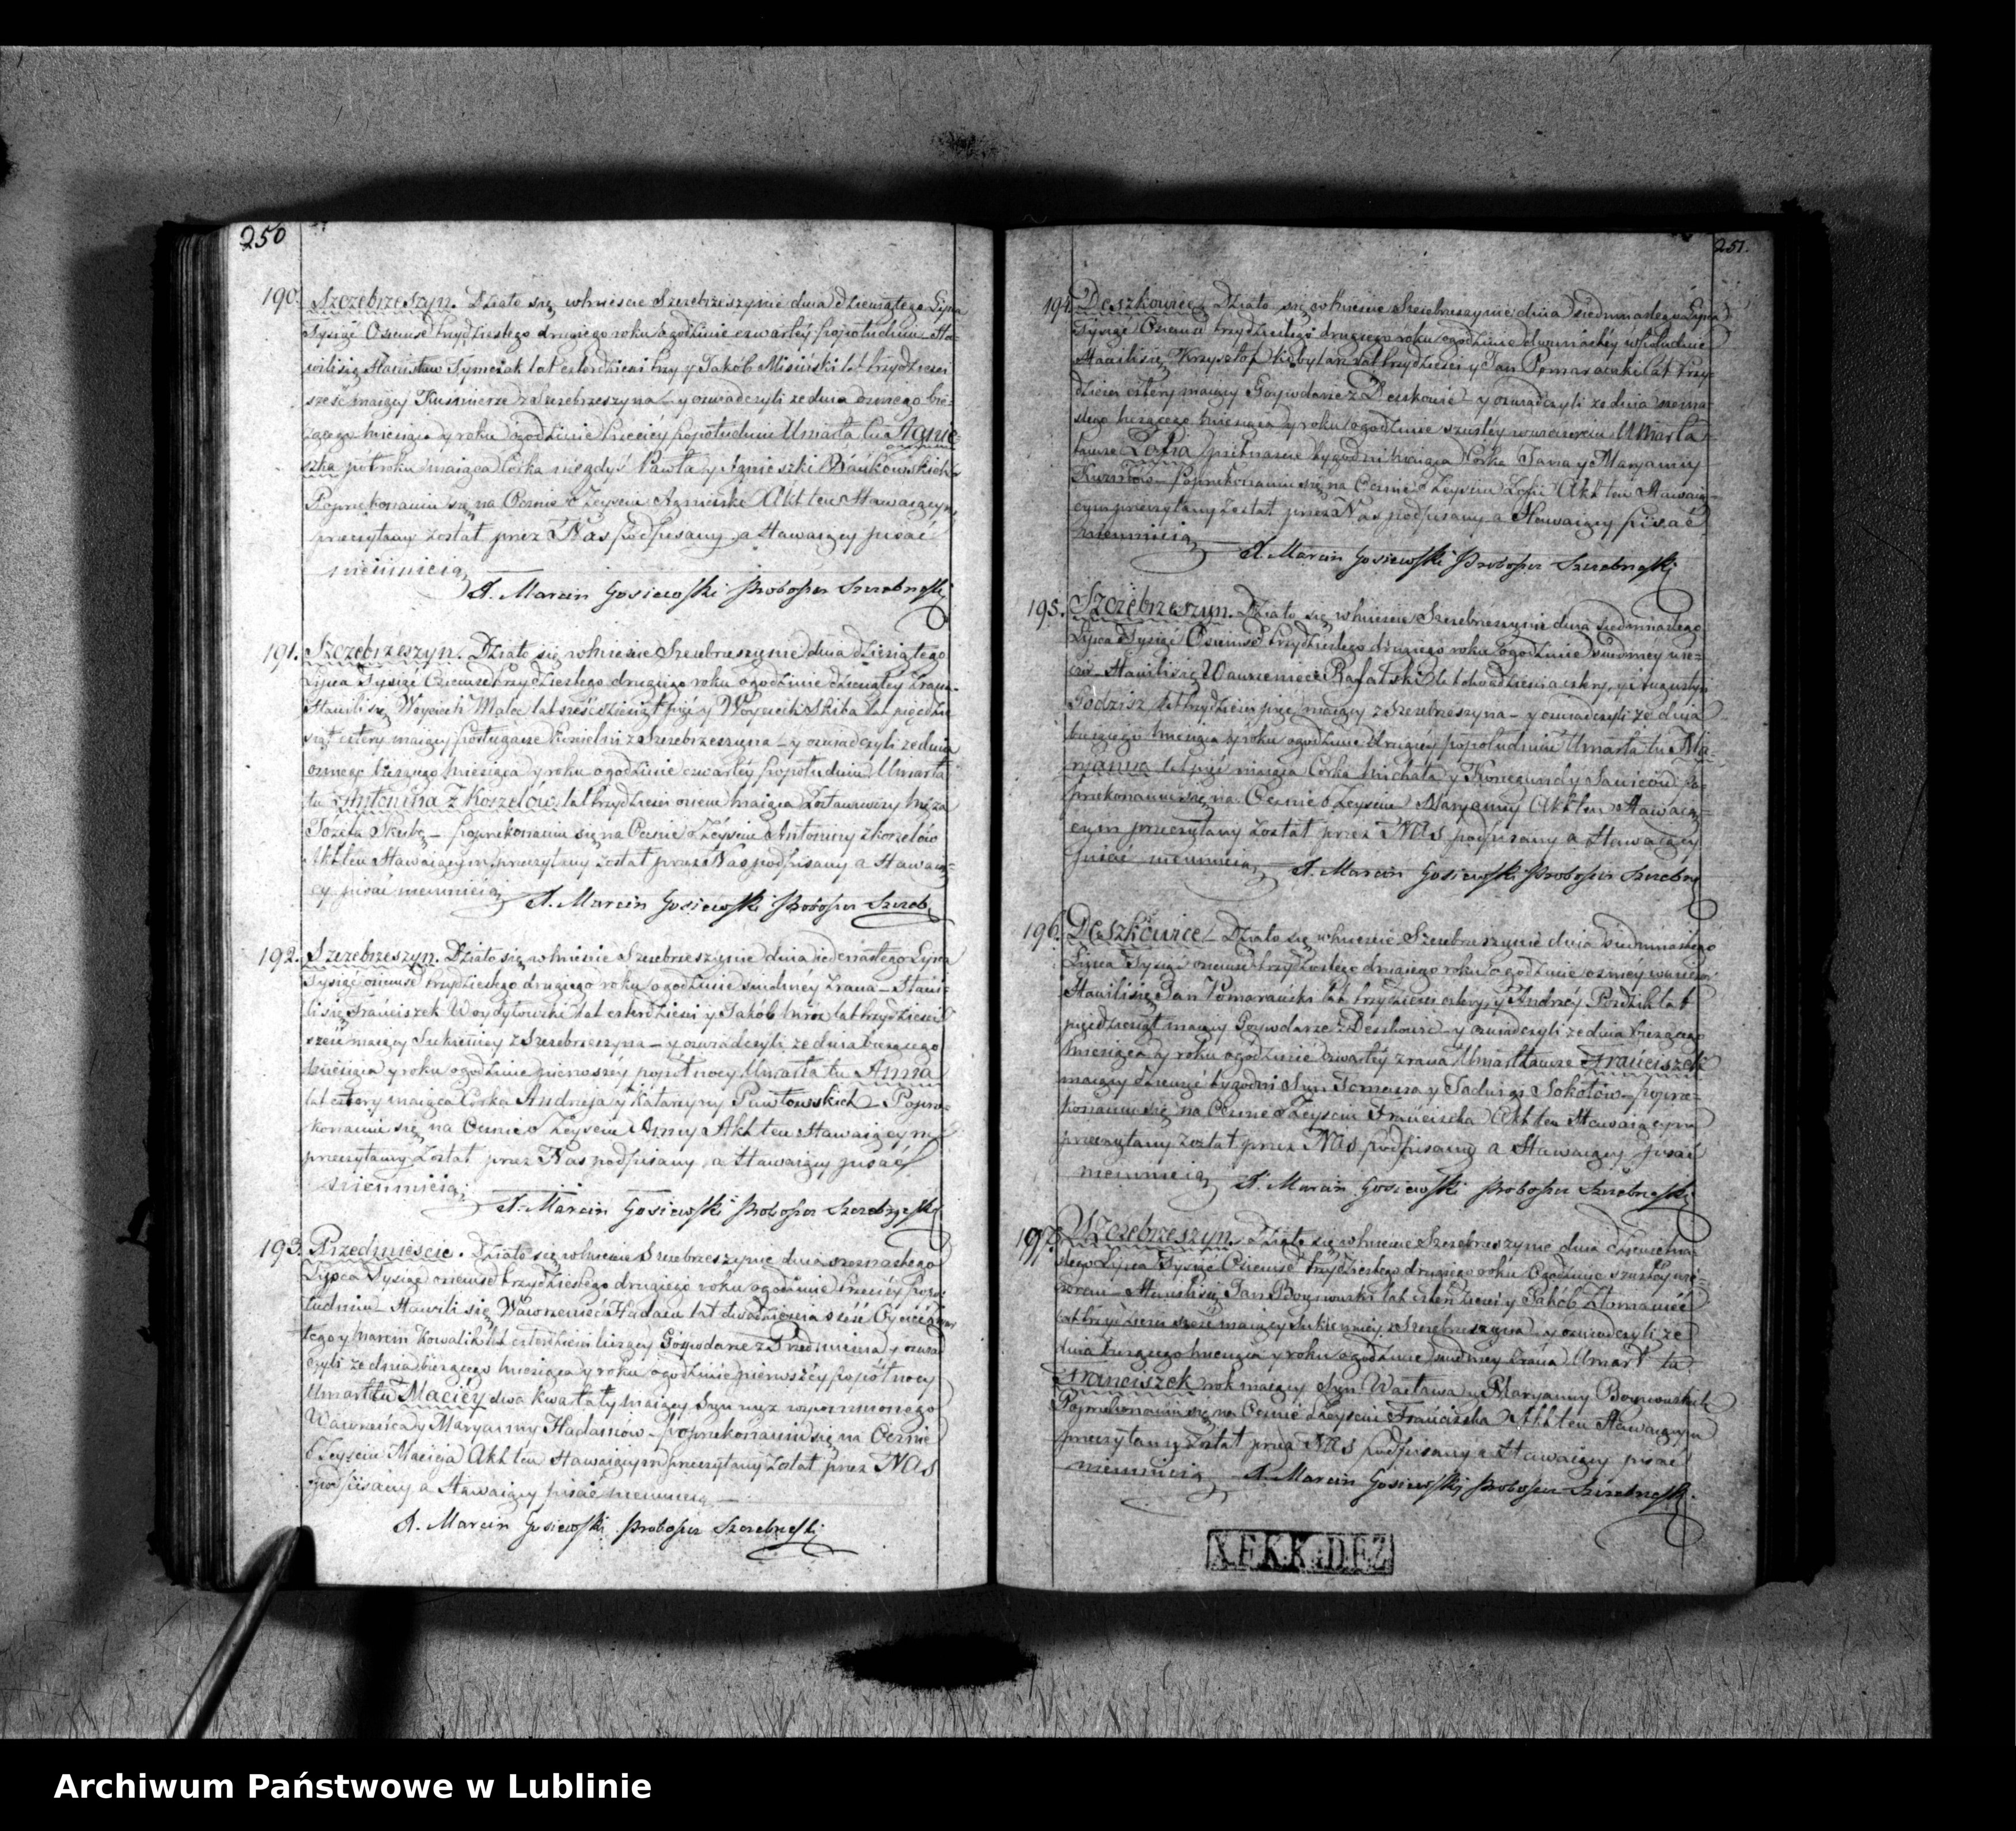 250
190. Szczebrzeszyn. Działo się w Mieście Szczebrzeszynie dnia dziewiątego Lipca
Tysiąc Osiemset trzydziestego drugiego roku o godzinie czwartéy popołudniu Sta-
wili się Stanisław Tymczak lat czterdzieści trzy y Jakób Misiński lat trzydzieści
sześć maiący Kuśnierze z Szczebrzeszyna – y oświadczyli ze dnia osmego bie-
zącego miesiąca y roku o godzinie trzeciey popołudniu Umarła tu Agnie-
szka pół roku maiąca Córka niegdyś Pawła y Agnieszki
Poprzekonaniu się na Ocznie o Zeyściu Agnieszki Akt ten Stawaiącym
przeczytany został przez Nas podpisany a Stawaiący pisać
nieumieią
X. Marcin Gosiewski Proboszcz Szczebrzeski
191. Szczebrzeszyn. Działo się w Mieście Szczebrzeszynie dnia dziesiątego
Lipca Tysiąc Osiemset trzydziestego drugiego roku o godzinie dziewiątey zrana –
Stawili się Woyciech Malec lat sześćdziesiąt pięć y Woyciech Skiba lat pięćdzie-
siąt cztery maiący Posługacze Kościelni z Szczebrzeszyna – y oświadczyli ze dnia
osmego bieżącego miesiąca y roku o godzinie czwartéy popołudniu Umarła
tu Antonina z Koszelów lat trzydzieści osiem maiąca Zostawiwszy męża
Józefa Skibę – poprzekonaniu się na Ocznie o Zéyściu Antoniny z Koszelów
Akt ten Stawaiącym przeczytany został przez Nas podpisany a Stawaią-
cy pisać nieumieią
X. Marcin Gosiewski Proboszcz Szczeb.
192. Szczebrzeszyn. Działo się w Mieście Szczebrzeszynie dnia iedenastego Lipca
Tysiąc osiemset trzydziestego drugiego roku o godzinie siódméy zrana – Stawi-
li się Franciszek Woydyłowski lat czterdzieści y Jakób Mróz lat trzydzieści
sześć maiący Sukiennicy z Szczebrzeszyna – y oświadczyli ze dnia bieżącego
miesiąca y roku o godzinie pierwszéy popółnocy Umarła tu Anna
lat cztery maiąca Córka Andrzeja y Katarzyny Pawłowskich – Poprze-
konaniu się na Ocznie o Zeyściu Anny Akt ten Stawaiącym
przeczytany Został przez Nas podpisany, a Stawaiący pisać
nieumieią
X. Marcin Gosiewski Proboszcz Szczebrzeski
193. Przedmieście. Działo się w Mieście Szczebrzeszynie dnia szesnastego
Lipca Tysiąc osiemset trzydziestego drugiego roku o godzinie trzeciéy popo-
łudniu – Stawili się Wawrzeniec Hadam lat dwadzieścia sześć Oyciec
tego y Marcin Kowalik lat czterdzieści liczący Gospodarze z Przedmieścia y oświad-
czyli ze dnia bieżącego miesiąca y roku o godzinie pierwszéy popółnocy
Umarł tu Maciéy dwa kwartały maiący Syn wyz wspomnionego
Wawrzeńca y Maryanny Hadamów – poprzekonaniu się na Ocznie
o Zeyściu Macieja Akt ten Stawaiącym przeczytany został przez NAS
podpisany a Stawaiący pisać nieumieią –
X. Marcin Gosiewski Proboszcz Szczebrzeski
251.
194. Deszkowice. Działo się w Mieście Szczebrzeszynie dnia siedmnastego Lipca
Tysiąc Osiemset trzydziestego drugiego roku o godzinie dwunastéy w południe
Stawili się Krzysztof lat trzydzieści y Jan Pomarański lat trzy-
dzieści cztery maiący Gospodarze z Deszkowic – y oświadczyli ze dnia szesna-
stego bieżącego miesiąca y roku o godzinie szóstéy wieczorem Umarła
tamże Zofia piętnaście tygodni maiąca Córka Jana y Maryanny
poprzekonaniu się na Ocznie o Zeyściu Zofii Akt ten Stawaią-
cym przeczytany został przez Nas podpisany a Stawaiący pisać
nieumieią
X. Marcin Gosiewski Proboszcz Szczebrzeski
195. Szczebrzeszyn. Działo się w Mieście Szczebrzeszynie dnia siedmnastego
Lipca Tysiąc Osiemset trzydziestego drugiego roku o godzinie siódmey wie-
czór – Stawili się Wawrzeniec Rafalski lat dwadzieścia cztery y Augustyn
Godzisz lat trzydzieści pięć maiący z Szczebrzeszyna – y oświadczyli ze dnia
bieżącego miesiąca y roku o godzinie drugiéy popołudniu Umarła tu Ma-
ryanna lat pięć maiąca Córka Michała y Kunegundy Sawiców po-
przekonaniu się na Ocznie o Zeyściu Maryanny Akt ten Stawaią-
cym przeczytany Został przez NAS podpisany a Stawaiący
pisać nieumieią
X. Marcin Gosiewski Proboszcz Szczebrz
196. Deszkowice – Działo się w Mieście Szczebrzeszynie dnia siedmnastego
Lipca Tysiąc osiemset trzydziestego drugiego roku o godzinie ósméy wieczór
Stawili się Jan Pomarański lat trzydzieści cztery, y Andrzéy lat
pięćdziesiąt maiący Gospodarze z Deszkowic – y oświadczyli ze dnia bieżącego
miesiąca y roku o godzinie czwartéy zrana Umarł tamże Franciszek
maiący tygodni Syn Tomasza y Jadwigi Sokołów – poprze-
konaniu się na Ocznie o Zeyściu Franciszka Akt ten Stawaiącym
przeczytany został przez NAS podpisany a Stawaiący pisać
nieumieią
X. Marcin Gosiewski Proboszcz Szczebrzeski
197. Szczebrzeszyn. Działo się w Mieście Szczebrzeszynie dnia dziewiętna-
stego Lipca Tysiąc Osiemset trzydziestego drugiego roku o godzinie szóstéy wie-
czorem – Stawili się Jan Bogowski lat czterdzieści y Jakób Złomaniec
lat trzydzieści sześć maiący Sukiennicy z Szczebrzeszyna – y oświadczyli ze
dnia bieżącego miesiąca y roku o godzinie siódmey zrana Umarł tu
Franciszek rok maiący Syn Wacława y Maryanny
Poprzekonaniu się na Ocznie o Zeyściu Franciszka Akt ten Stawaiącym
przeczytany Został przez NAS podpisany a Stawaiący pisać
nieumieią
X. Marcin Gosiewski Proboszcz Szczebrzeski.
Archiwum Państwowe w Lublinie